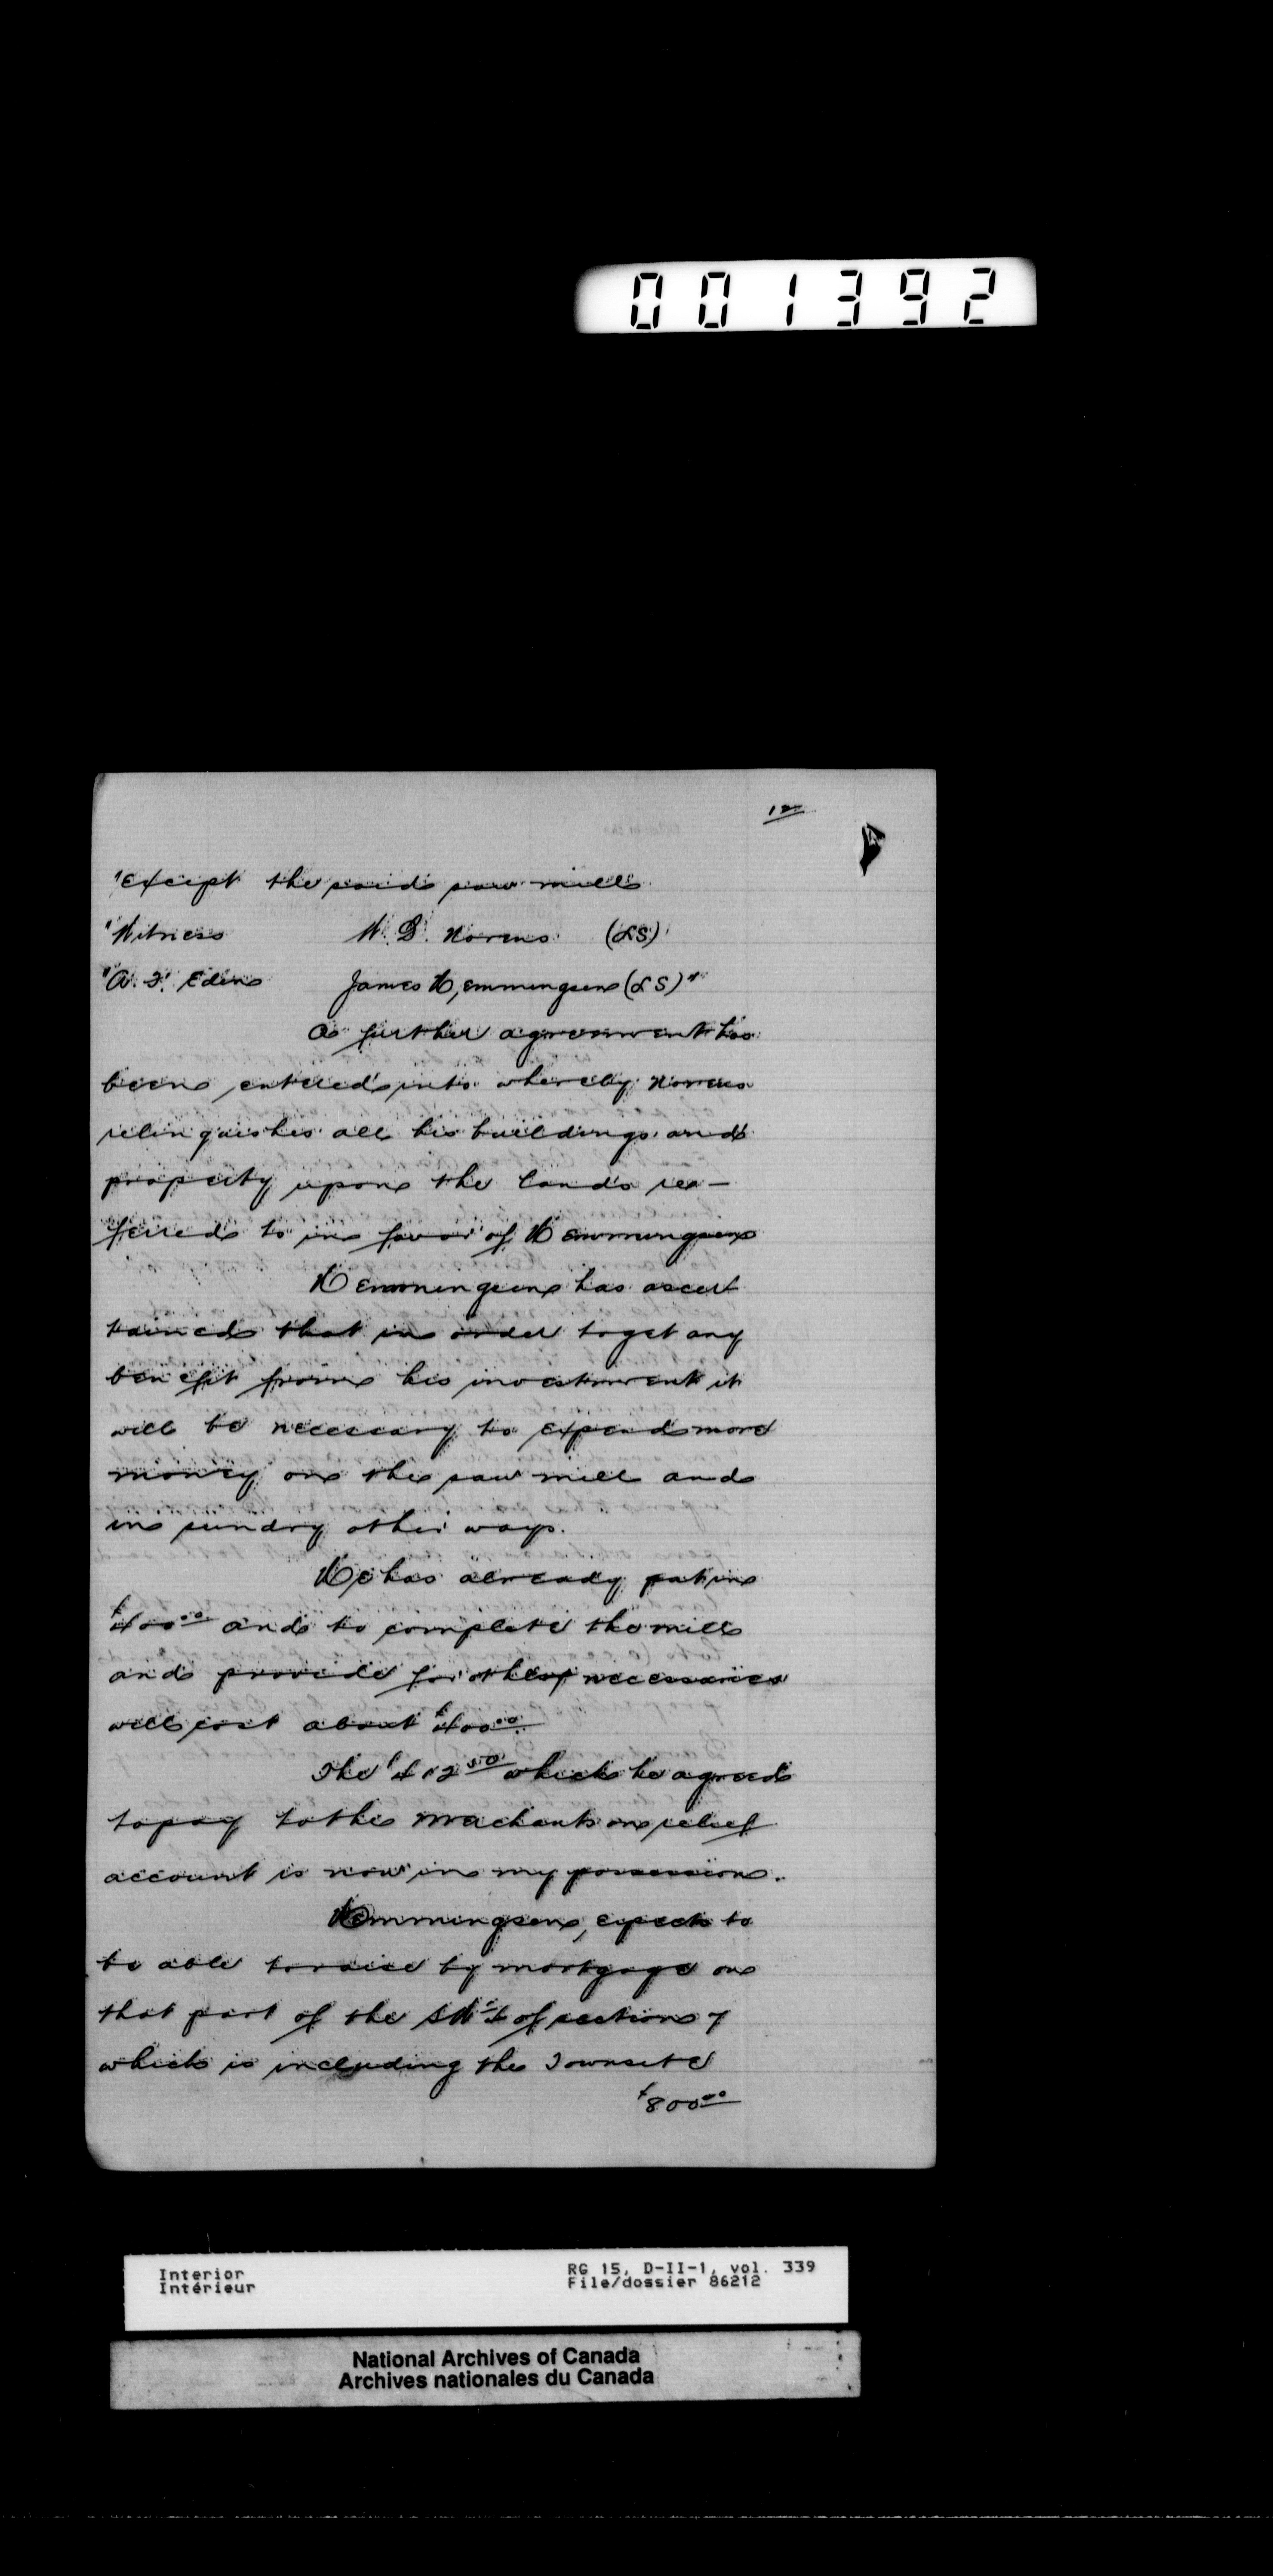 001392
12
"Except the said saw mill
"Witness W. D. Norens (LS)
"A. F. Eden James Hemmingsen (LS)"
A further agreement has
been entered into whereby Norens
relinquishes all his buildings and
property upon the lands re-
ferred to in favor of Hemmingsen
Hemmingsen has ascert
tained that in order to get any
benefit from his investment it
will be necessary to expend more
money on the saw mill and
in sundry other ways.
He has already put in
$400.00 and to complete the mill
and provide for other necessaries
will cost about $400.00.
The $412.50 which he agreed
to pay to the merchants on relief
account is now in my possession.
Hemmingsen, expects to
be able to raise by mortgage on
that part of the SW¼ of section 7
which is including the Townsite
$800.00
Interior RG 15, D-II-1, vol. 339
Intérieur File/dossier 86212
National Archives of Canada
Archives nationales du Canada